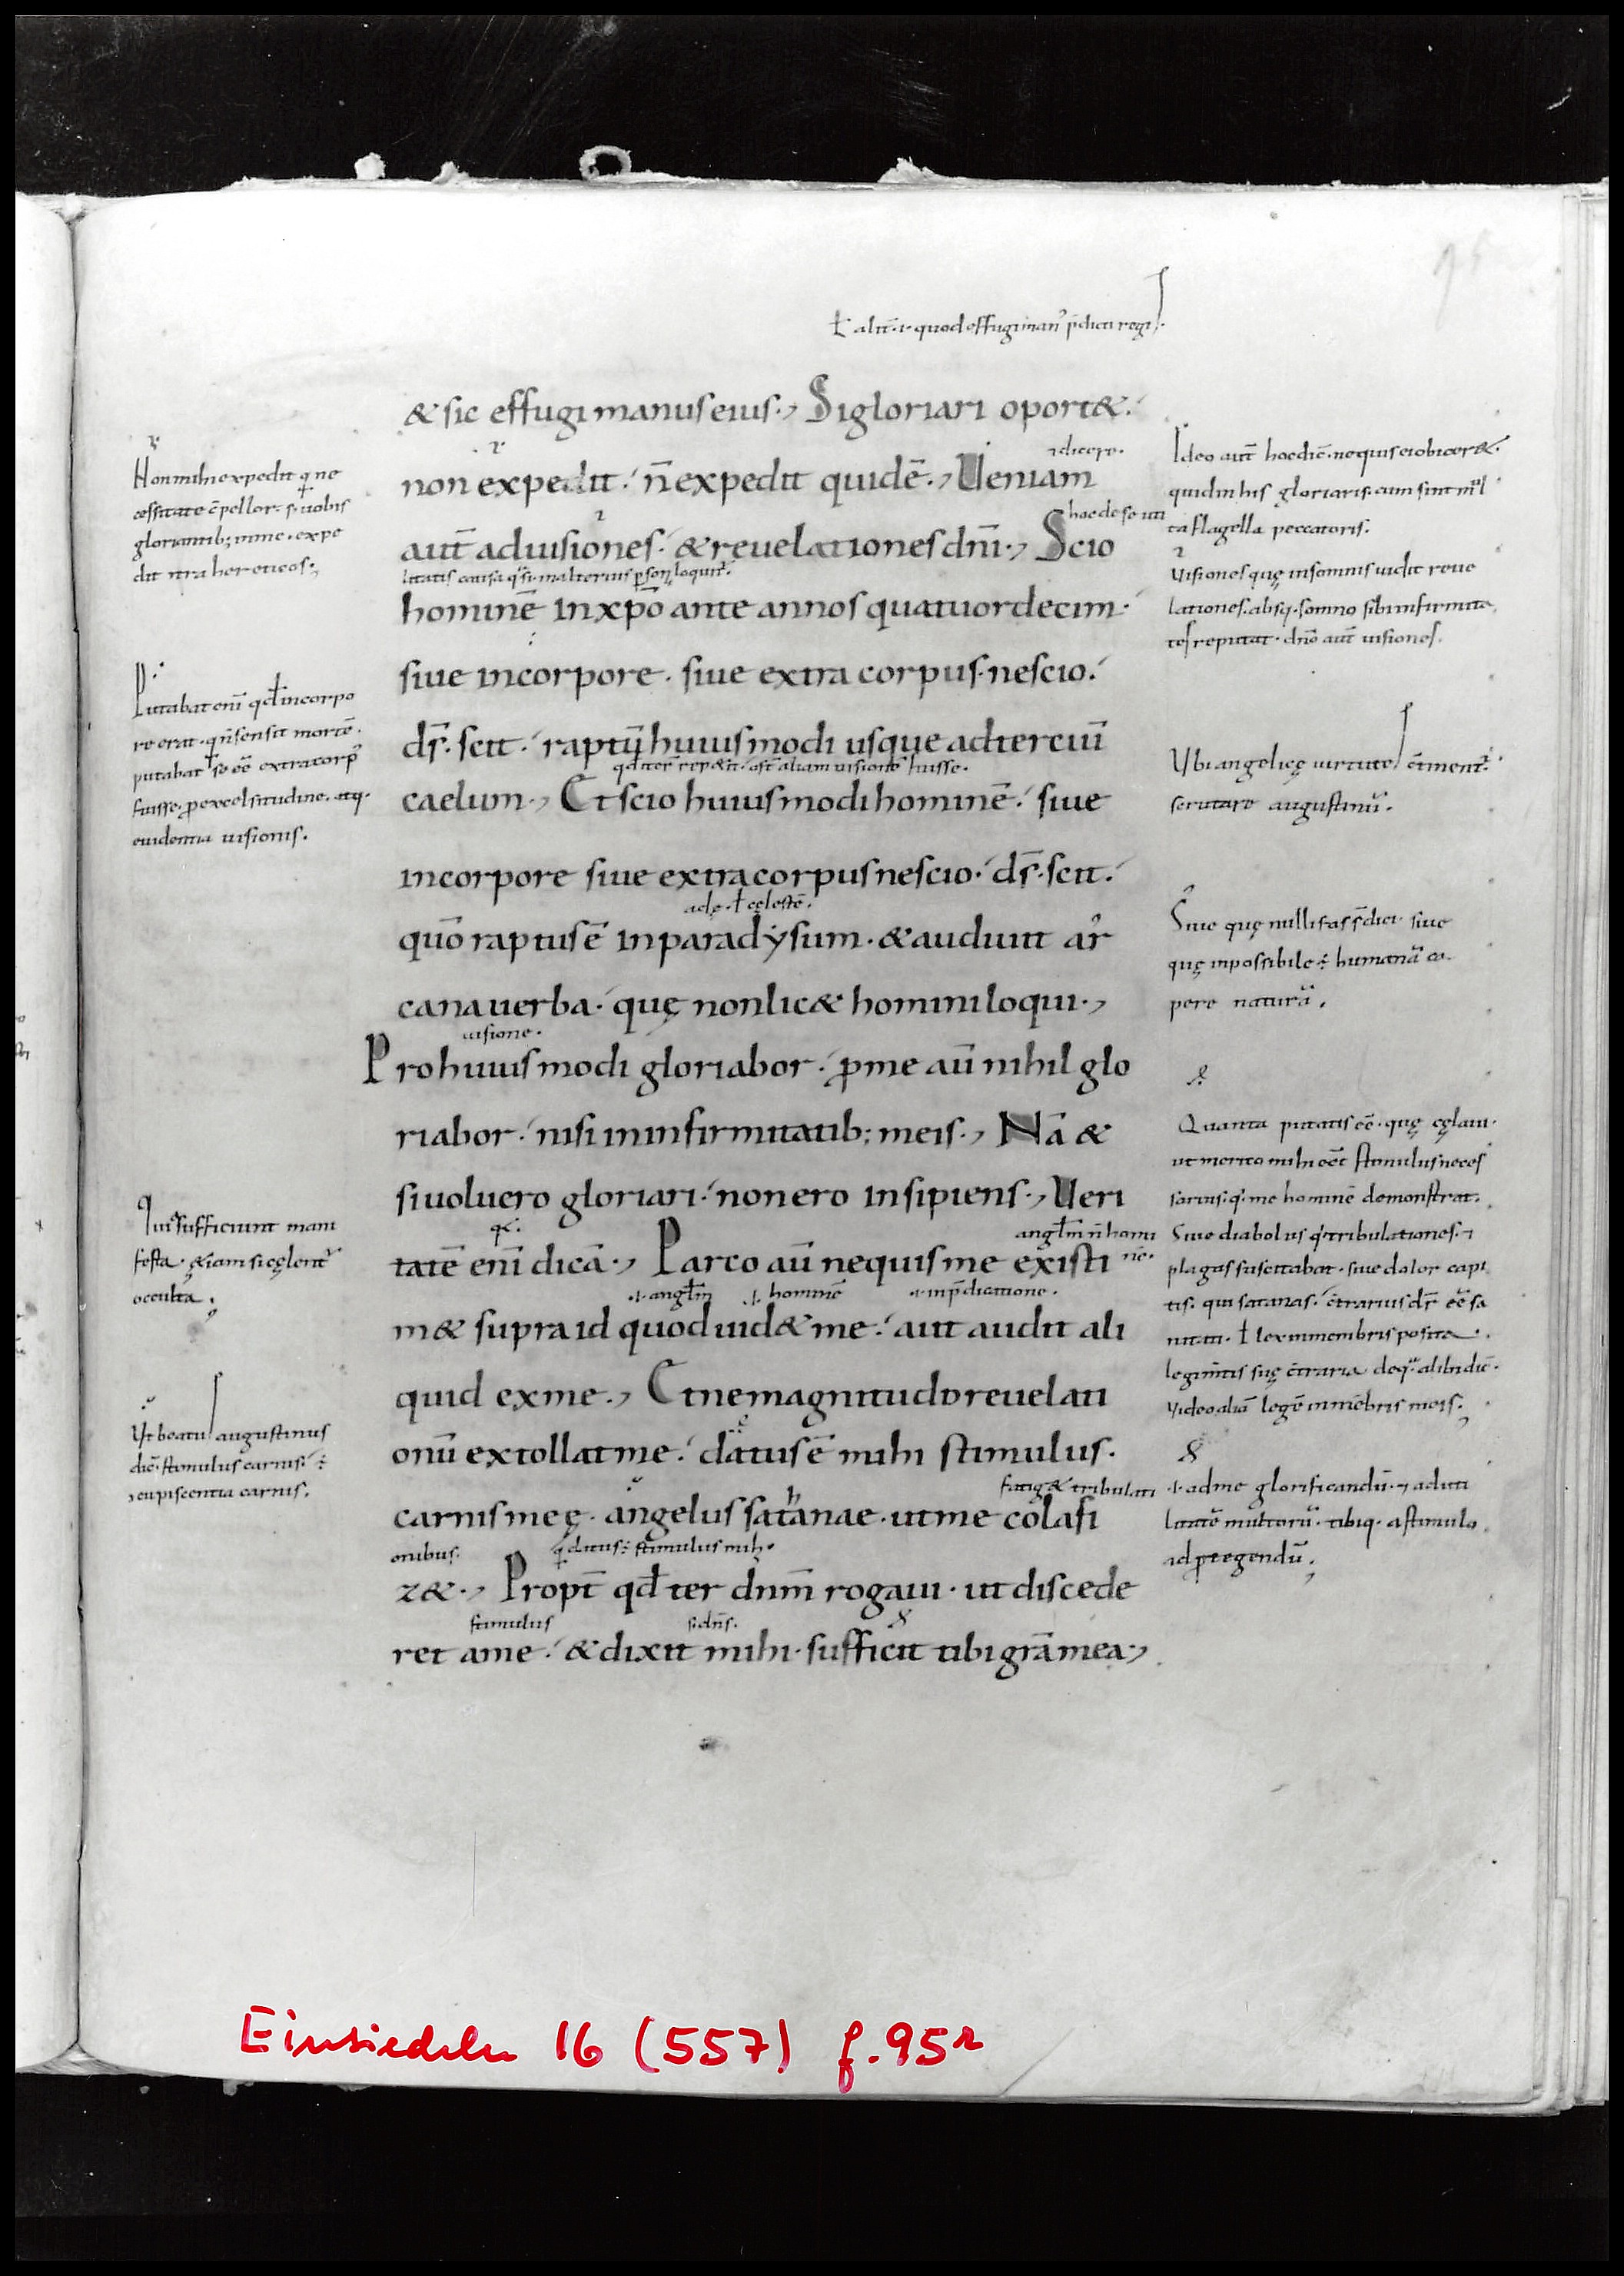 ł alit̄ ·i· quod effugi man᷒ p̄dicti regis.
& sic effugi manus eius., Si gloriari oport&.
non expedit. n̄ expedit quidē., Ueniam
⁊ dicere.
aut̄ ad uisiones. & reuelationes dn̄i., Scio
hoc de se uti
litatis causa q̅si in alterius psonę loquit᷒.
hominē in xpō ante annos quatuordecim.
siue in corpore. siue extra corpus. nescio.
ds̄. scit. raptū huiusmodi usque ad terciū
caelum., Et scio huiusmodi hominē. siue
in corpore siue extra corpus nescio. ds̄. scit.
adę. ł cęlestē.
quō raptus ē in paradysum. & audiuit ar
cana uerba. quę non lic& homini loqui.,
uisione.
Pro huiusmodi gloriabor. ꝓ me aū nihil glo
riabor. nisi in infirmitatib; meis., Nā &
si uoluero gloriari. non ero insipiens., Ueri
tatē enī dicā., Parco aū ne quis me existi
angłm n̄ homi
nē.
·i· angłm ł hominē ·i· in p̄dicatione.
m& supra id quod uid& me. aut audit ali
quid ex me., Et ne magnitudo reuelati
onū extollat me. datus ē mihi stimulus.
carnis meę. angelus sathanae. ut me colafi
fatig& tribulati
onibus.
z&., Propt̄ qd̄ ter dnm̄ rogaui. ut discede
stimulus
s. dn̄s.
ret a me. & dixit mihi. sufficit tibi grā mea.,
Non mihi expedit q ne
cessitate c̄pellor. s. uobis
gloriantib; nunc. expe
dit ⁊tra hereticos.,
Putabat enī qd̄ ł in corpo
re erat. q n̄ sensit mortē.
putabat se eē extra corp᷒
fuisse. ꝓ excelsitudine. atq.
euidentia uisionis.
Qui sufficiunt mani
festa. &iam si cęlent᷒
occulta.,
Ut beatus augustinus
dic̄. stimulus carnis. ÷
⁊cupiscentia carnis.
Ideo aut̄ hoc dic̄. ne quis ei obicer&.
quid in his gloriaris. cum sint mul
ta flagella peccatoris.
Uisiones quę in somnis uidit reue
lationes. absq. somno sibi infirmita
tes reputat. dn̄o aut̄ uisiones.
Ubi angelicę uirtutes
scrutare augustinū.
Siue quę nulli fas s̄ dici. siue
quę inpossibile ÷ humanā ca
pere naturā.
Quanta putatis eē. quę cęlaui.
ut merito mihi eēt stimulus neces
sarius. q. me hominē demonstrat.
Siue diabolus q. tribulationes. ⁊
plagas suscitabat. siue dolor capi
tis. qui satanas. c̄trarius dr̄ eē sa
nitati. ł lex in membris posita.
legi m̄tis suę c̄traria de q. alibi dic̄.
Uideo aliā legē in mēbris meis.,
·i· ad me glorificandū. ⁊ ad uti
litatē multorū. tibiq. a stimulo.
ad ꝓtegendū.,
Einsiedeln 16 (557) f. 95r